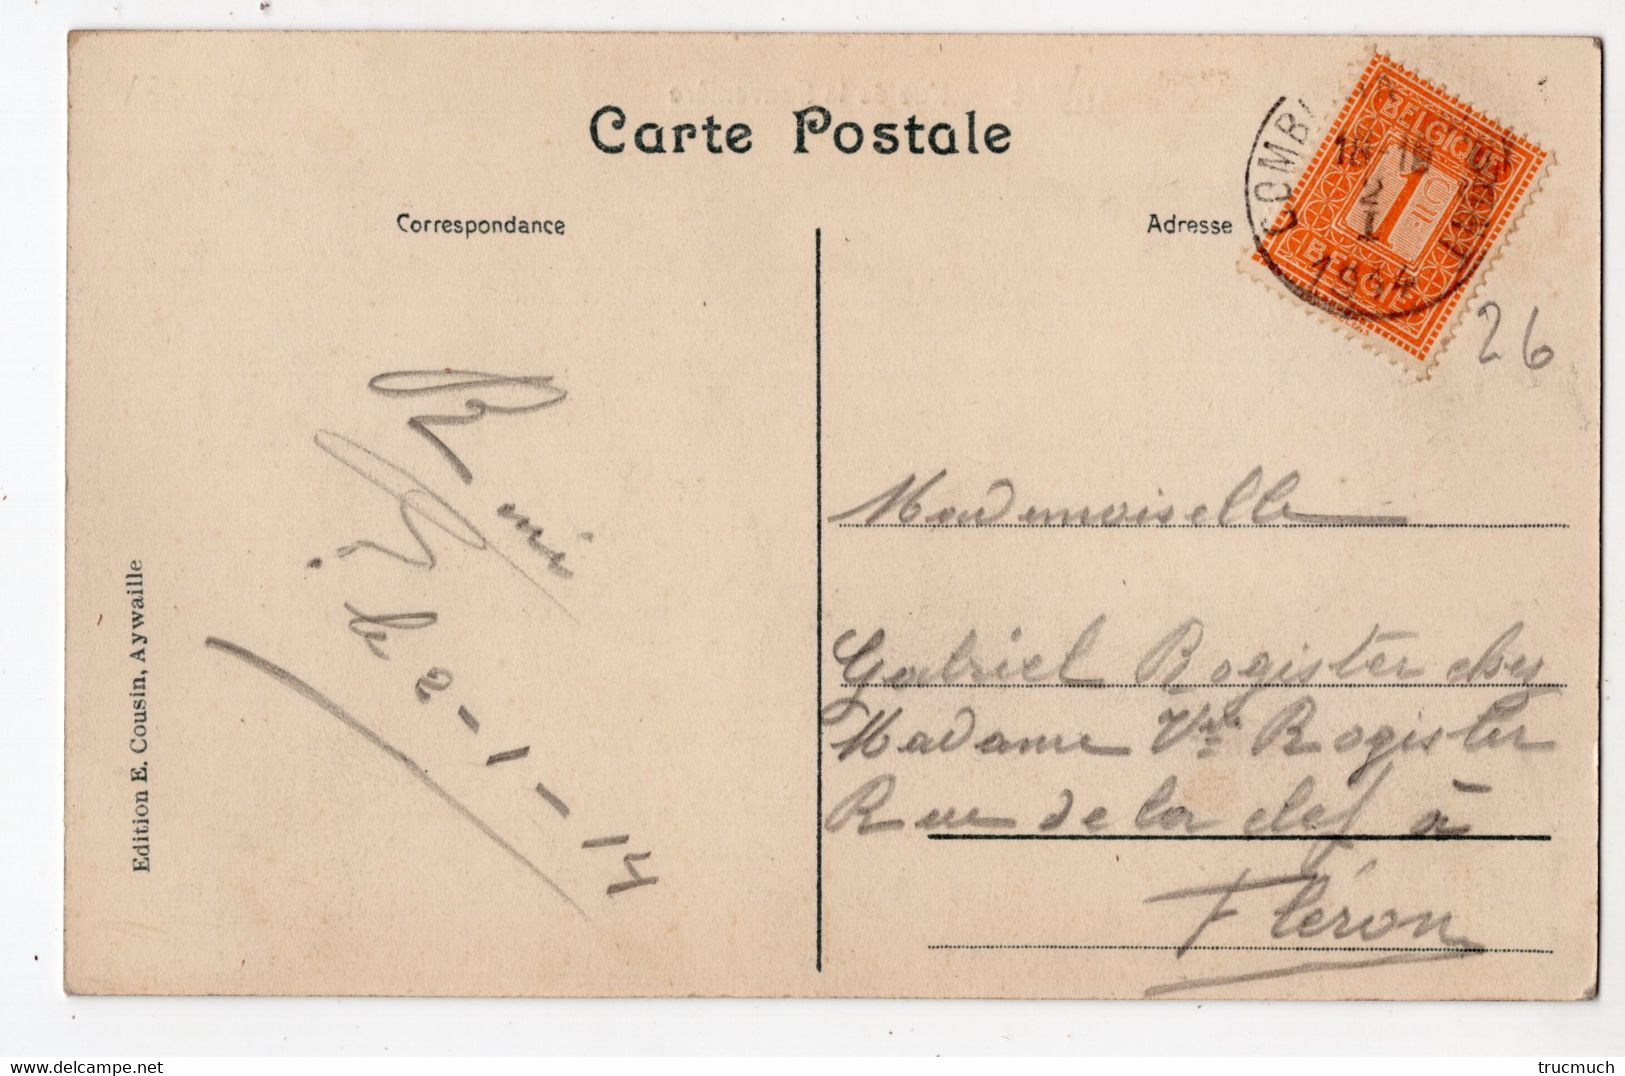 Carte Postale
Correspondance
Adresse
BELGIQUE
1 C
BELGIË
COMBL
2
I
1914
26
le 2-1-14
Mademoiselle
Gabriel Rogister chez
Madame Vve Rogister
Rue de la clef à
Fléron
Edition E. Cousin, Aywaille
Delcampe.net
trucmuch